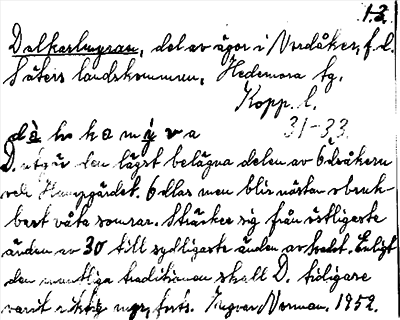 1-3.
Dalkarlmyran, del av ägor i Nordåker, f.d.
Säters landskommun, Hedemora tg.
Kopp. l.
31-33
D. utgör den lägst belägna delen av Ödsåkern
Odlas men blir nästan obruk-
bart våta somrar. Sträcker sig från östligaste
änden av 30 till sydligaste änden av Enligt
den muntliga traditionen skall D. tidigare
varit riktig myr, forts. Ingvar Norman. 1952.